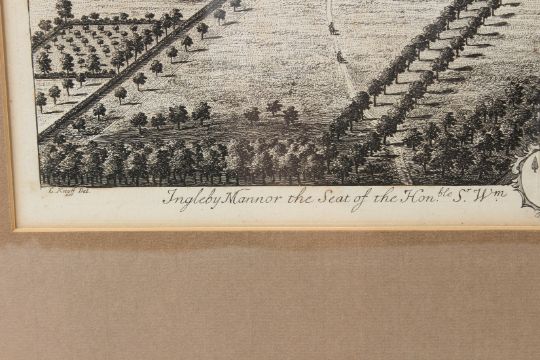 L. Knyff Del.
Ingleby Mannor the Seat of the Hon.ble Sr. Wm